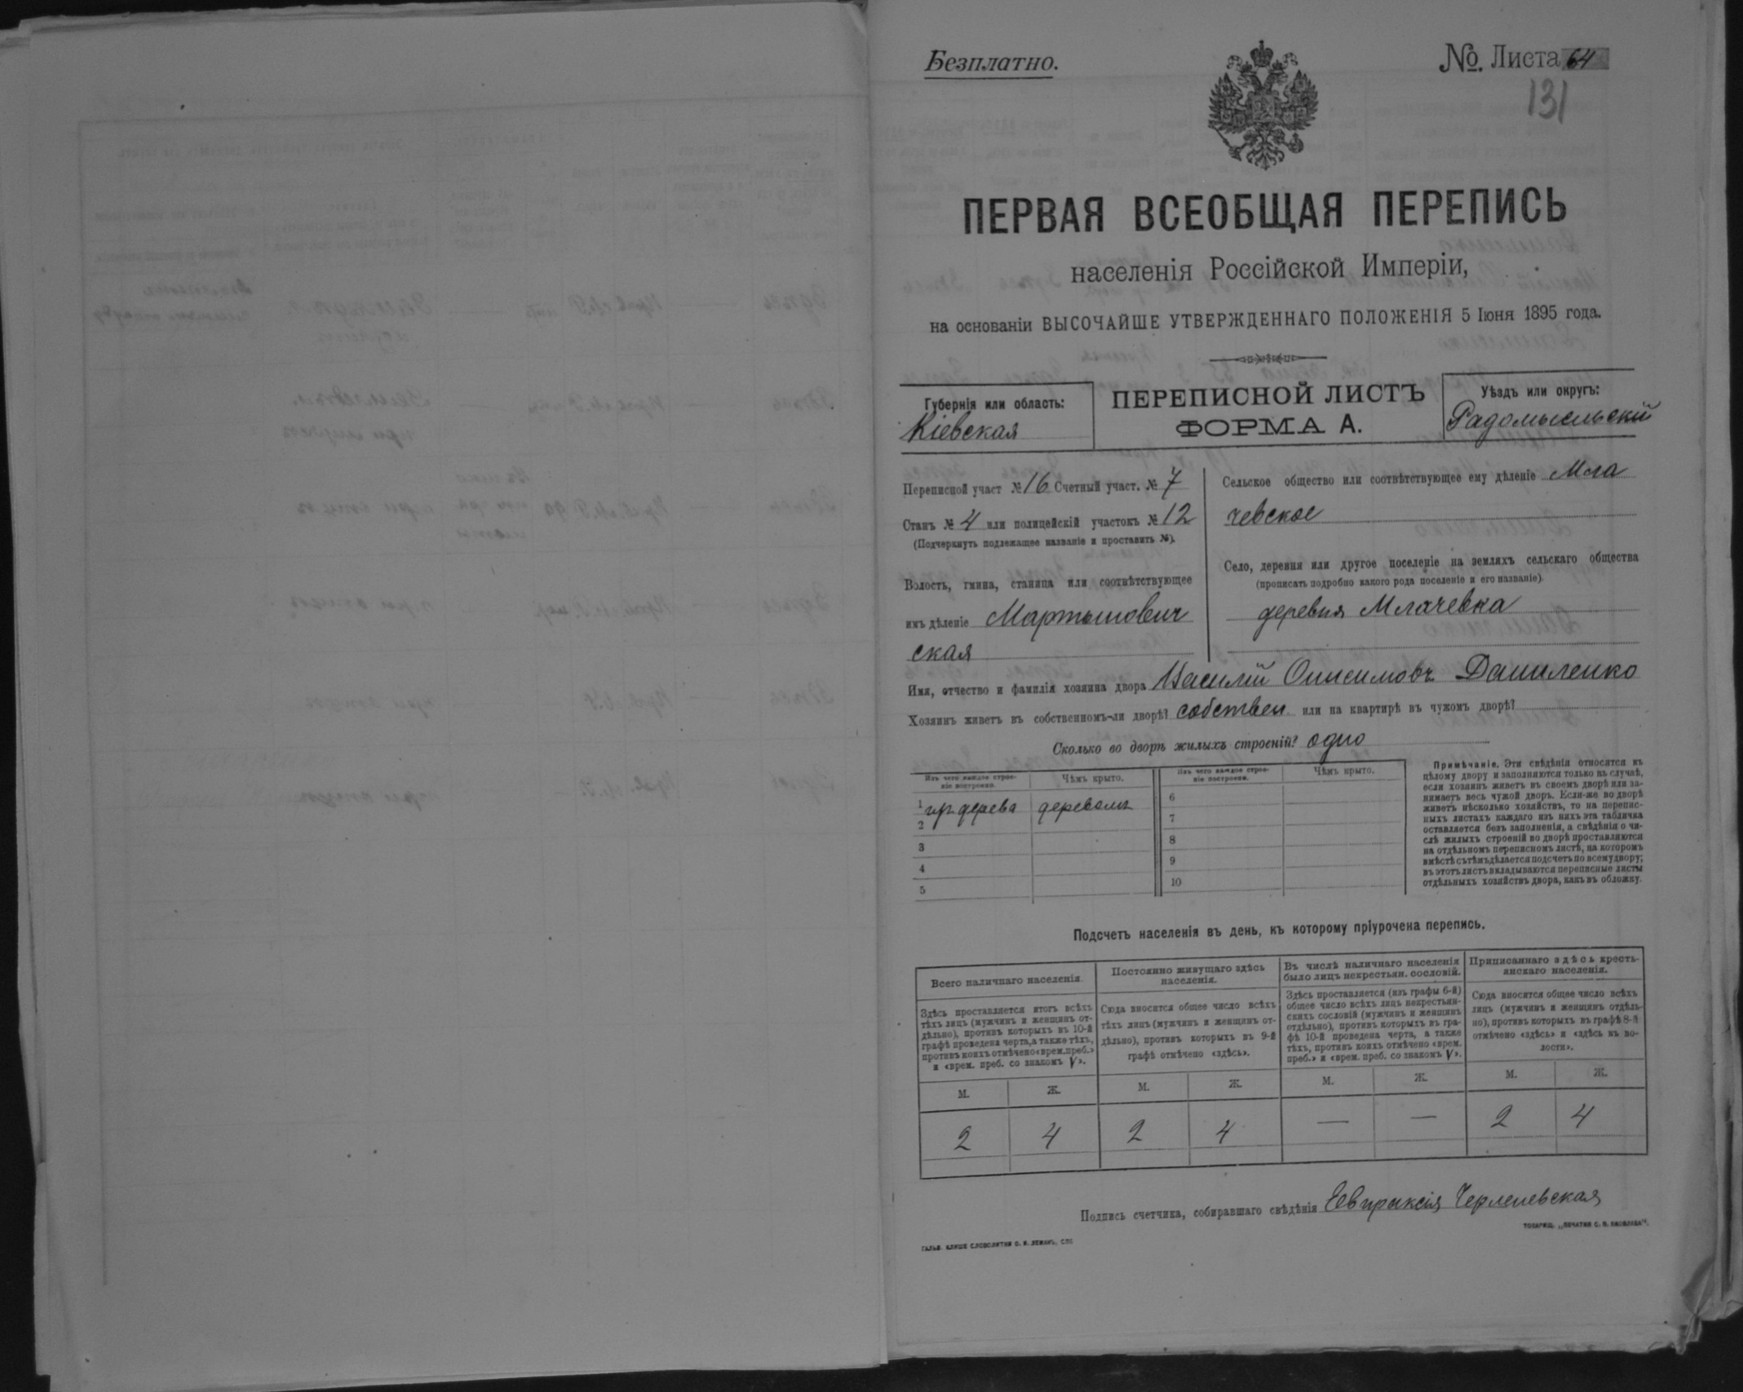 Безплатно.
№ Листа 64
131
ПЕРВАЯ ВСЕОБЩАЯ ПЕРЕПИСЬ
населенія Россійской Имперіи,
на основаніи ВЫСОЧАЙШЕ УТВЕРЖДЕННАГО ПОЛОЖЕНІЯ 5 Іюня 1895 года.
Губернія или область:
Кіевская
ПЕРЕПИСНОЙ ЛИСТЪ
ФОРМА А.
Уѣздъ или округъ:
Радомысльскій
Переписной участ № 16 Счетный участ. № 7
Станъ № 4 или полицейскій участокъ № 12
(Подчеркнуть подлежащее названіе и проставить №).
Волость, гмина, станица или соотвѣтствующее
имъ дѣленіе Мартынович
ская
Сельское общество или соотвѣтствующее ему дѣленіе Мла
чевское
Село, деревня или другое поселеніе на земляхъ сельскаго общества
(прописать подробно какого рода поселеніе и его названіе)
деревня Млачевка
Имя, отчество и фамилія хозяина двора Василій Онисимовъ Даниленко
Хозяинъ живетъ въ собственномъ-ли дворѣ? собствен или на квартирѣ въ чужомъ дворѣ?
Сколько во дворѣ жилыхъ строеній? одно
Изъ чего каждое строе-
ніе построено.
Чѣмъ крыто.
Изъ чего каждое строе-
ніе построено.
Чѣмъ крыто.
1 изъ дерева деревомъ
2
3
4
5
6
7
8
9
10
Примѣчаніе. Эти свѣдѣнія относятся къ
цѣлому двору и заполняются только въ случаѣ,
если хозяинъ живетъ въ своемъ дворѣ или за-
нимаетъ весь чужой дворъ. Если-же во дворѣ
живетъ нѣсколько хозяйствъ, то на перепис-
ныхъ листахъ каждаго изъ нихъ эта табличка
оставляется безъ заполненія, а свѣдѣнія о чи-
слѣ жилыхъ строеній во дворѣ проставляются
на отдѣльномъ переписномъ листѣ, на которомъ
вмѣстѣ съ тѣмъ дѣлается подсчетъ по всему двору;
въ этотъ листъ вкладываются переписные листы
отдѣльныхъ хозяйствъ двора, какъ въ обложку.
Подсчетъ населенія въ день, къ которому пріурочена перепись.
Всего наличнаго населенія.
Здѣсь проставляется итогъ всѣхъ
тѣхъ лицъ (мужчинъ и женщинъ от-
дѣльно), противъ которыхъ въ 10-й
графѣ проведена черта, а также тѣхъ,
противъ коихъ отмѣчено «врем. преб.»
и «врем. преб. со знакомъ V».
Постоянно живущаго здѣсь
населенія.
Сюда вносится общее число всѣхъ
тѣхъ лицъ (мужчинъ и женщинъ от-
дѣльно), противъ которыхъ въ 9-й
графѣ отмѣчено «здѣсь».
Въ числѣ наличнаго населенія
было лицъ некрестьян. сословій.
Здѣсь проставляется (изъ графы 6-й)
общее число всѣхъ лицъ некрестьян-
скихъ сословій (мужчинъ и женщинъ
отдѣльно), противъ которыхъ въ гра-
фѣ 10-й проведена черта, а также
тѣхъ, противъ коихъ отмѣчено «врем.
преб.» и «врем. преб. со знакомъ V».
Приписаннаго здѣсь кресть-
янскаго населенія.
Сюда вносится общее число всѣхъ
лицъ (мужчинъ и женщинъ отдѣль-
но), противъ которыхъ въ графѣ 8-й
отмѣчено «здѣсь» и «здѣсь въ во-
лости».
М. Ж. М. Ж. М. Ж. М. Ж.
2 4 2 4 — — 2 4
Подпись счетчика, собиравшаго свѣдѣнія Евпраксія
ГАЛЬВ. КЛИШЕ СЛОВОЛИТНИ О. И. ЛЕМАНЪ, СПБ
ТОВАРИЩ. „ПЕЧАТНЯ С. П. ЯКОВЛЕВА".